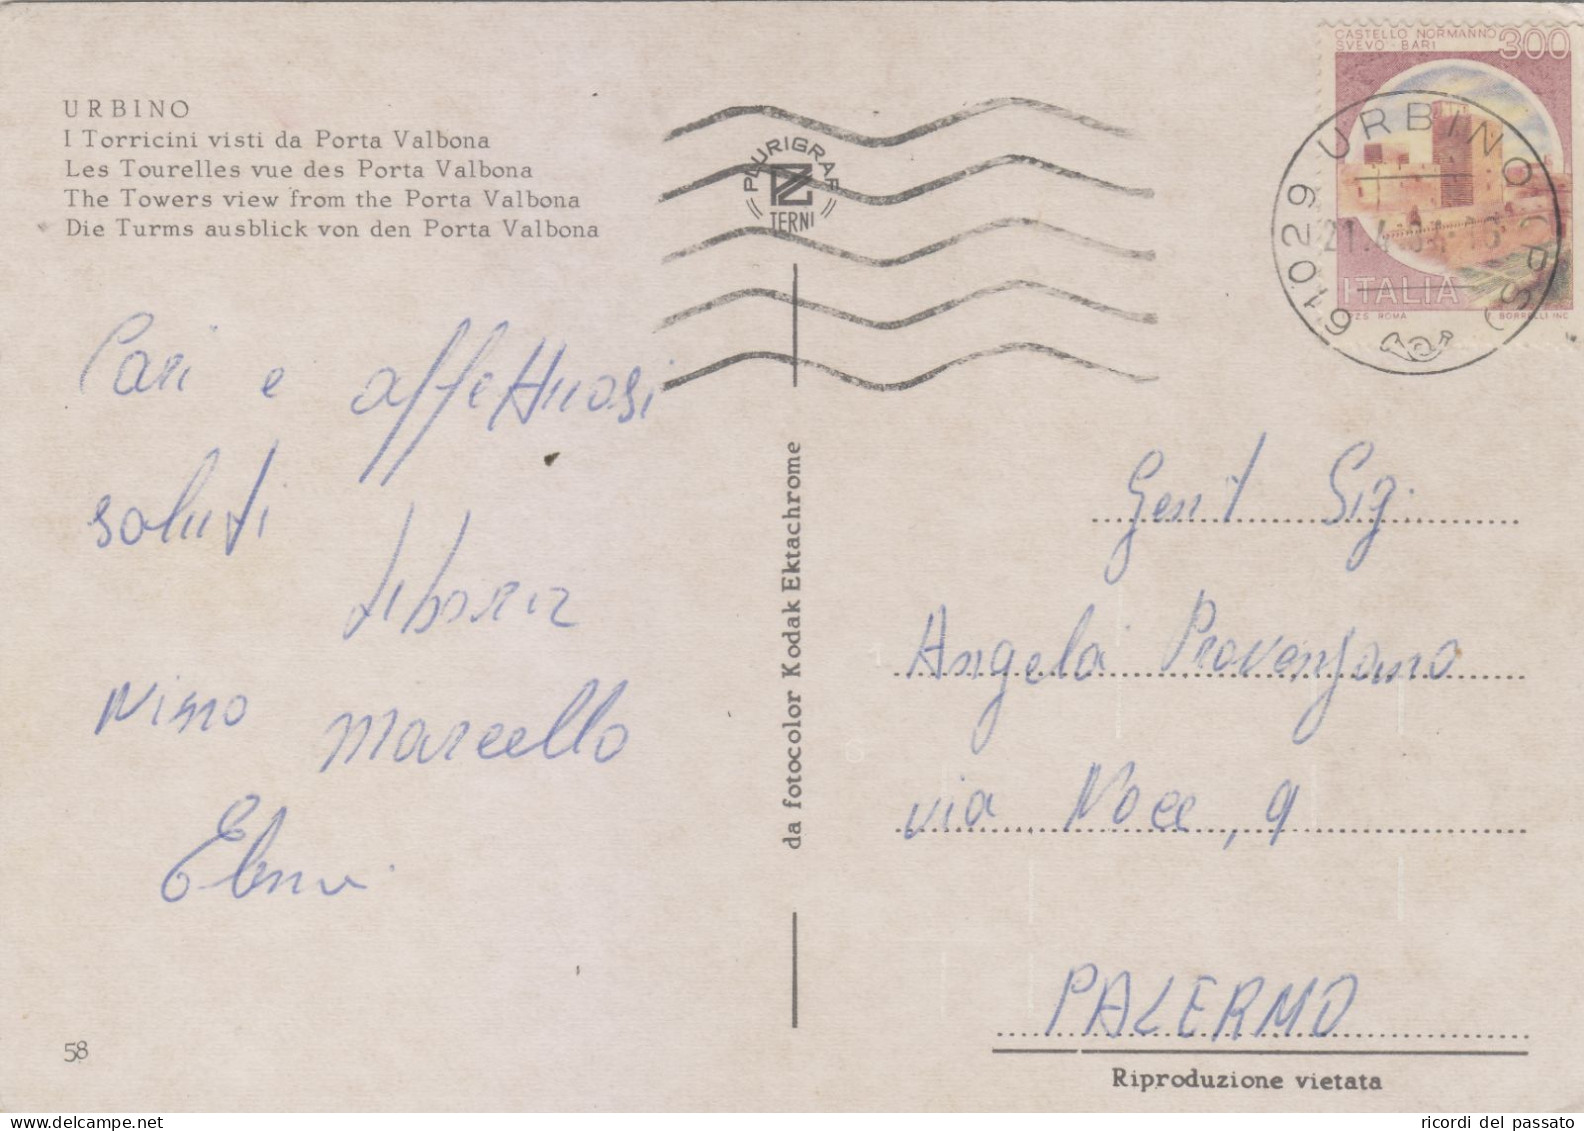 URBINO
I Torricini visti da Porta Valbona
Les Tourelles vue des Porta Valbona
The Towers view from the Porta Valbona
Die Turms ausblick von den Porta Valbona
PLURIGRAF
TERNI
CASTELLO NORMANNO
SVEVO - BARI
300
ITALIA
I.P.Z.S. ROMA
F. BORRELLI INC.
61029 URBINO CP (PS)
21.4
Cari e affettuosi
saluti
Nino Marcello
da fotocolor Kodak Ektachrome
Gent Sig.
Angela Provenzano
via Noce, 9
PALERMO
58
Riproduzione vietata
ricordi del passato